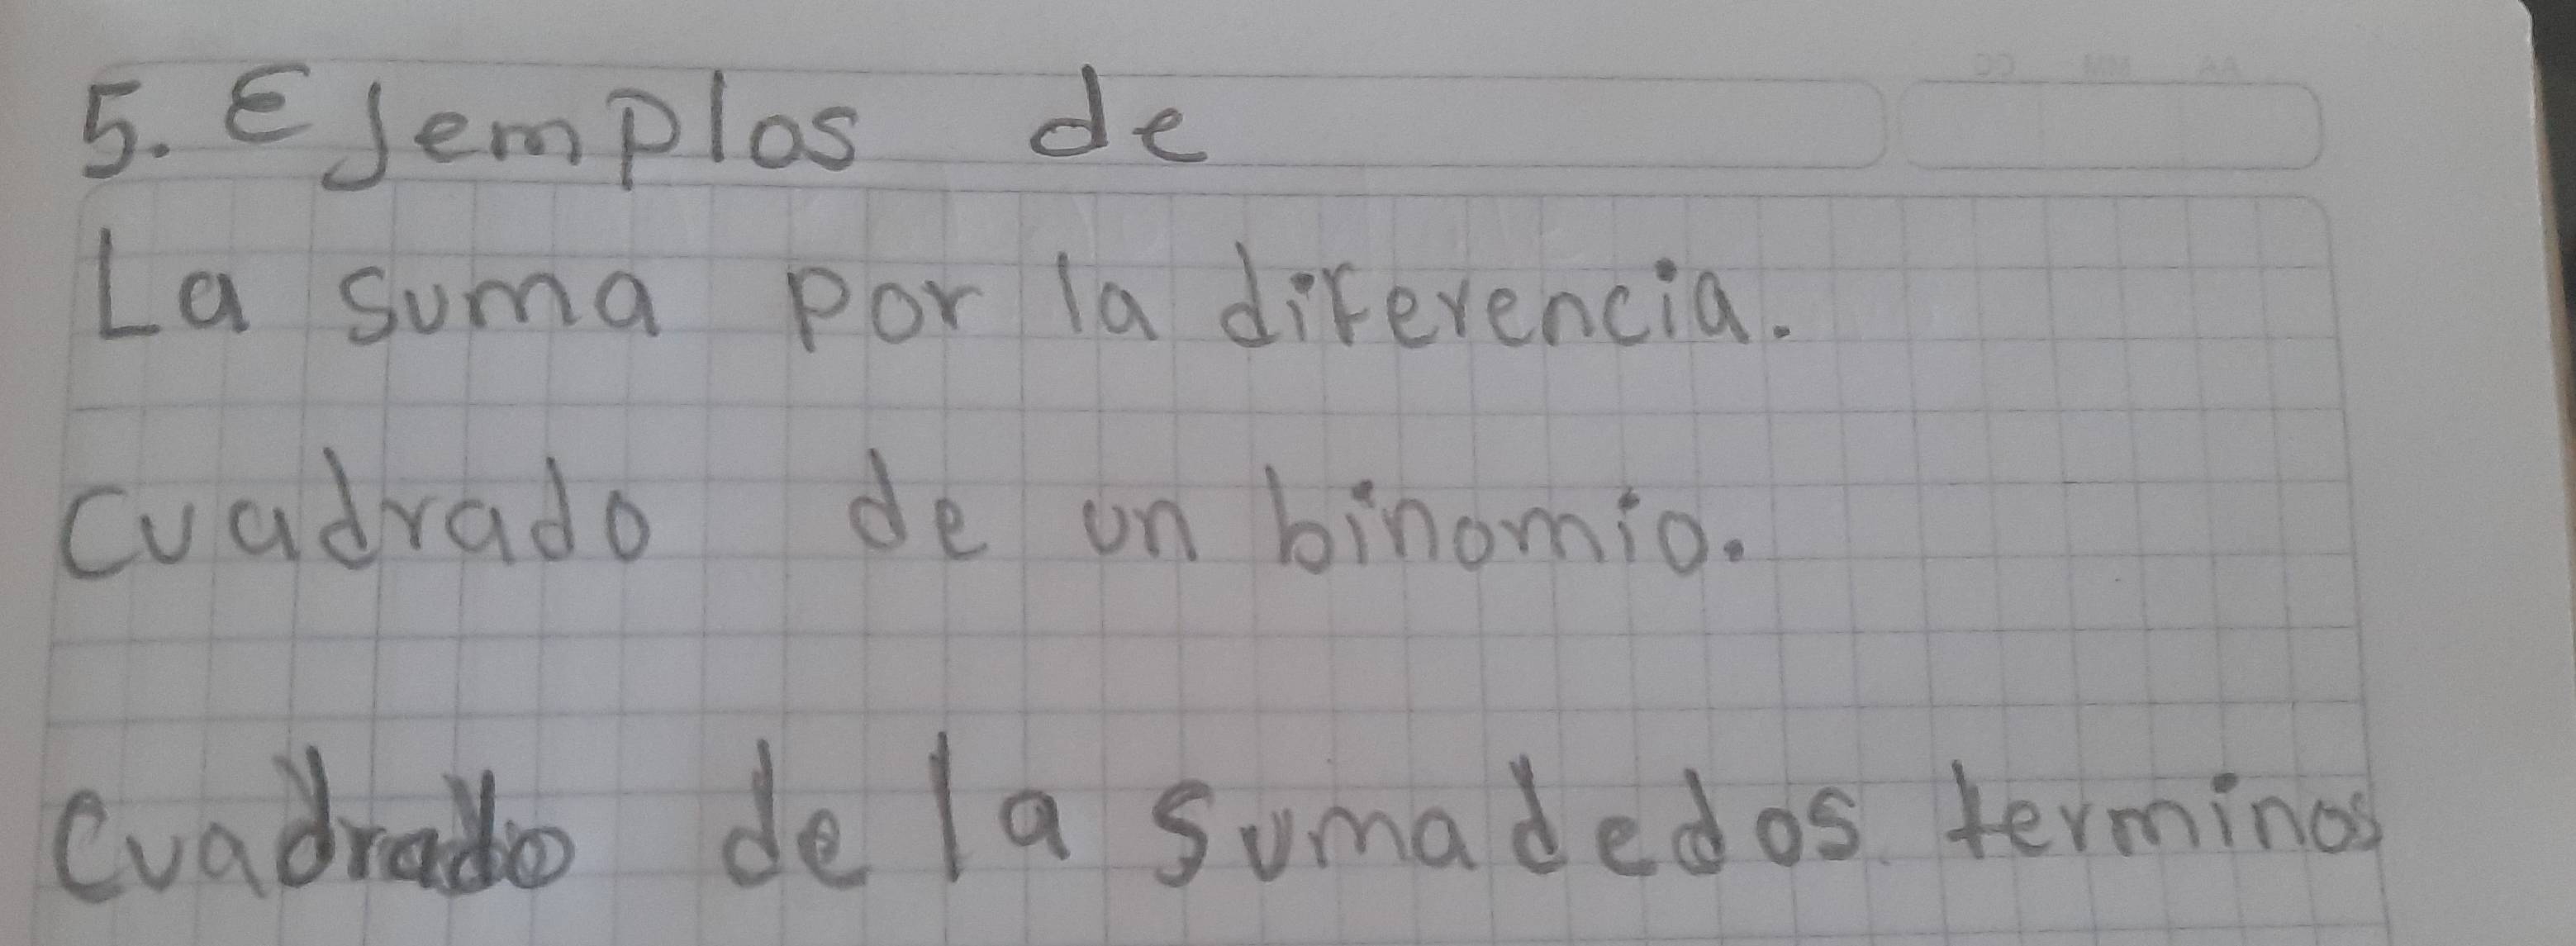 5. Ejemplos de
La suma por la diferencia.
cuadrado de un binomio.
Cuadrado de la suma de dos terminos